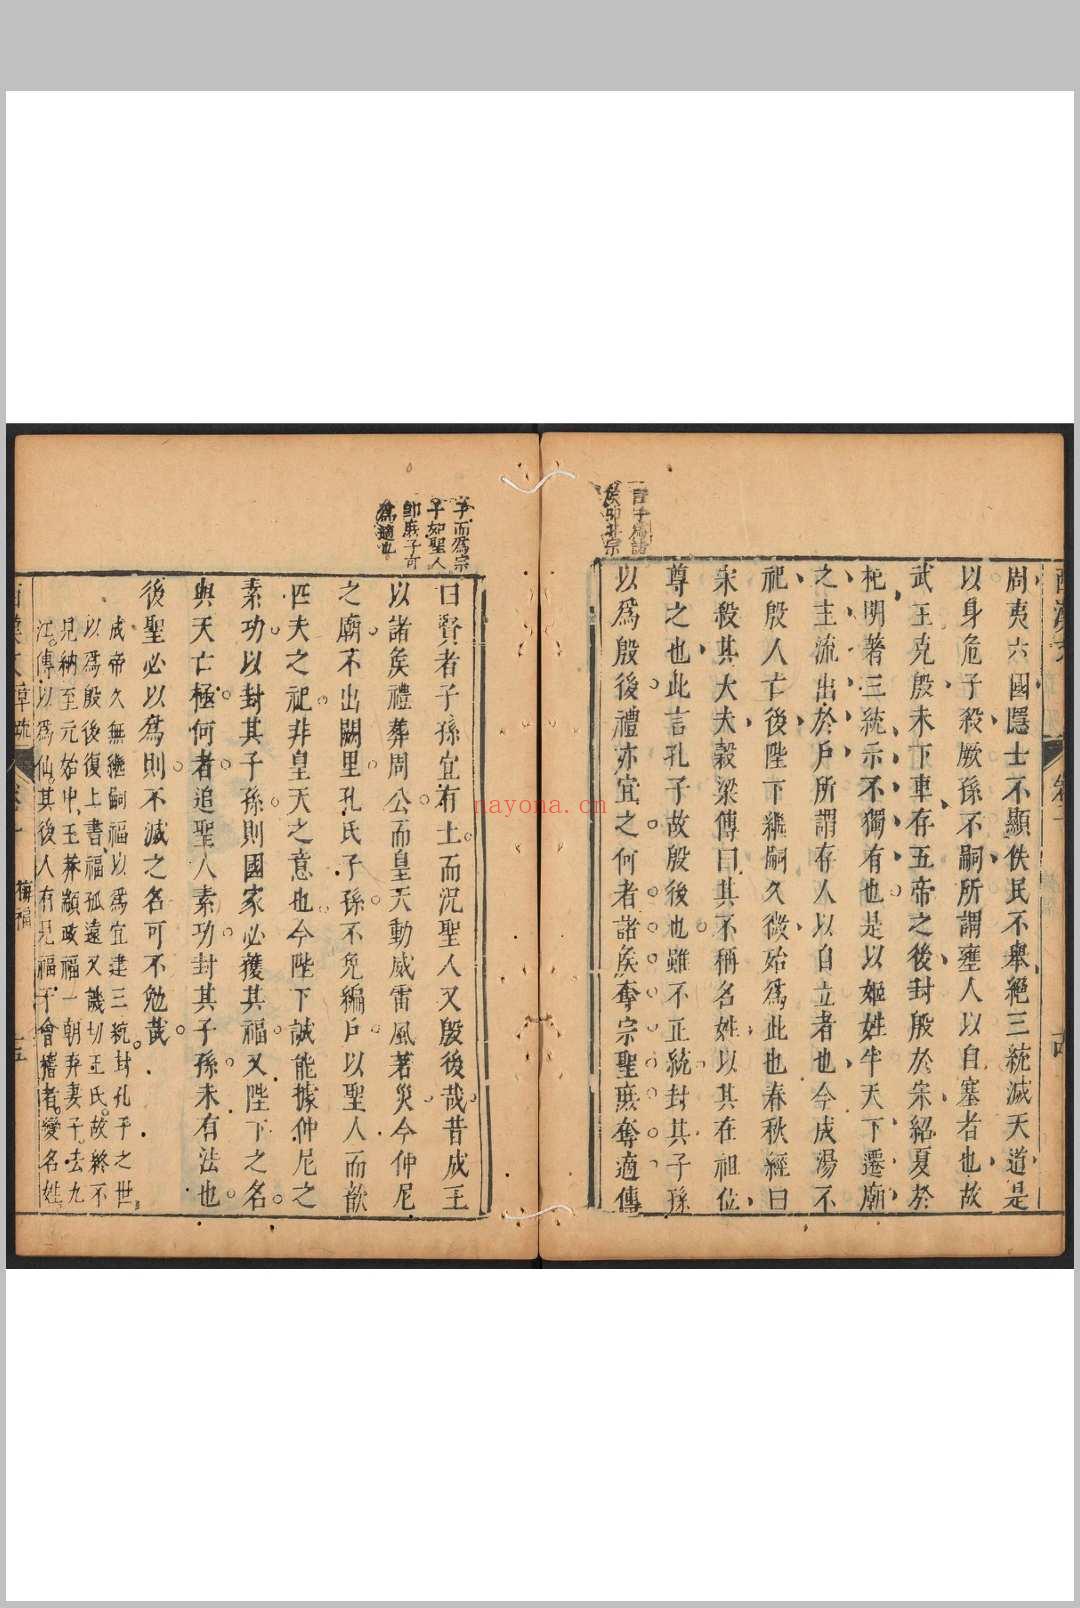 言孑爲諸
侯卽其宗
周夷六國隱士不顯佚民不舉絕三統滅天道是
以身危子殺厥孫不嗣所謂壅人以自塞者也故
武王克殷未下車存五帝之後封殷於宋紹夏於
杞明著三統示不獨有也是以姬姓半天下遷廟
之主流出於戶所謂存人以自立者也今成湯不
祀殷人亡後陛下繼嗣久微殆爲此也春秋經曰
宋殺其大夫穀梁傳曰其不稱名姓以其在祖位
尊之也此言孔子故殷後也雖不正統封其子孫
以爲殷後禮亦宜之何者諸矦奪宗聖庶奪適傳
子而爲宗
子如聖人
卽庶子可
爲適也
曰賢者子孫宜有土而況聖人又殷後哉昔成王
以諸矦禮葬周公而皇天動威雷風著災今仲尼
之廟不出闕里孔氏子孫不免編戶以聖人而歆
匹夫之祀非皇天之意也今陛下誠能據仲尼之
素功以封其子孫則國家必獲其福又陛下之名
與天亡極何者追聖人素功封其子孫未有法也
後聖必以爲則不滅之名可不勉哉
成帝久無繼嗣福以爲宜建三統封孔子之世
以爲殷後復上書福孤遠又譏切王氏故終不
見納至元始中王莽顓政福一朝弃妻子去九
江傳以爲仙其後人有見福于會稽者變名姓
梅福
nayona.cn